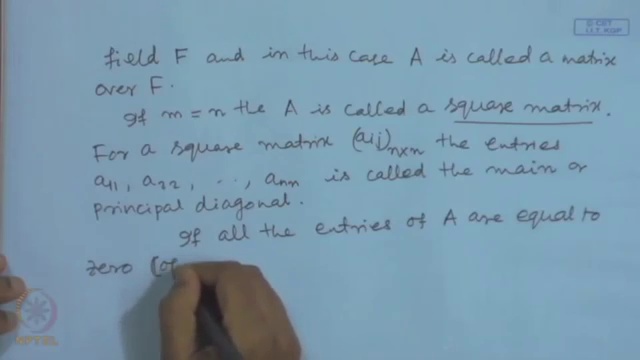 © CET
I.I.T. KGP
field F and in this case A is called a matrix
over F.
If m = n the A is called a square matrix.
For a square matrix (aij)n×n the entries
a11, a22, .., ann is called the main or
principal diagonal.
If all the entries of A are equal to
zero (of
NPTEL